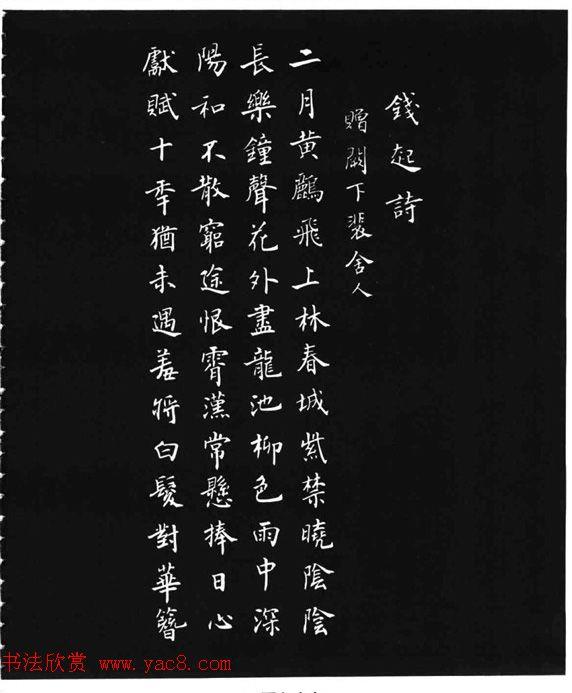 錢起詩
贈闕下裴舍人
二月黃鸝飛上林春城紫禁曉陰陰
長樂鐘聲花外盡龍池柳色雨中深
陽和不散窮途恨霄漢常懸捧日心
獻賦十年猶未遇羞將白髮對華簪
书法欣赏 www.yac8.com